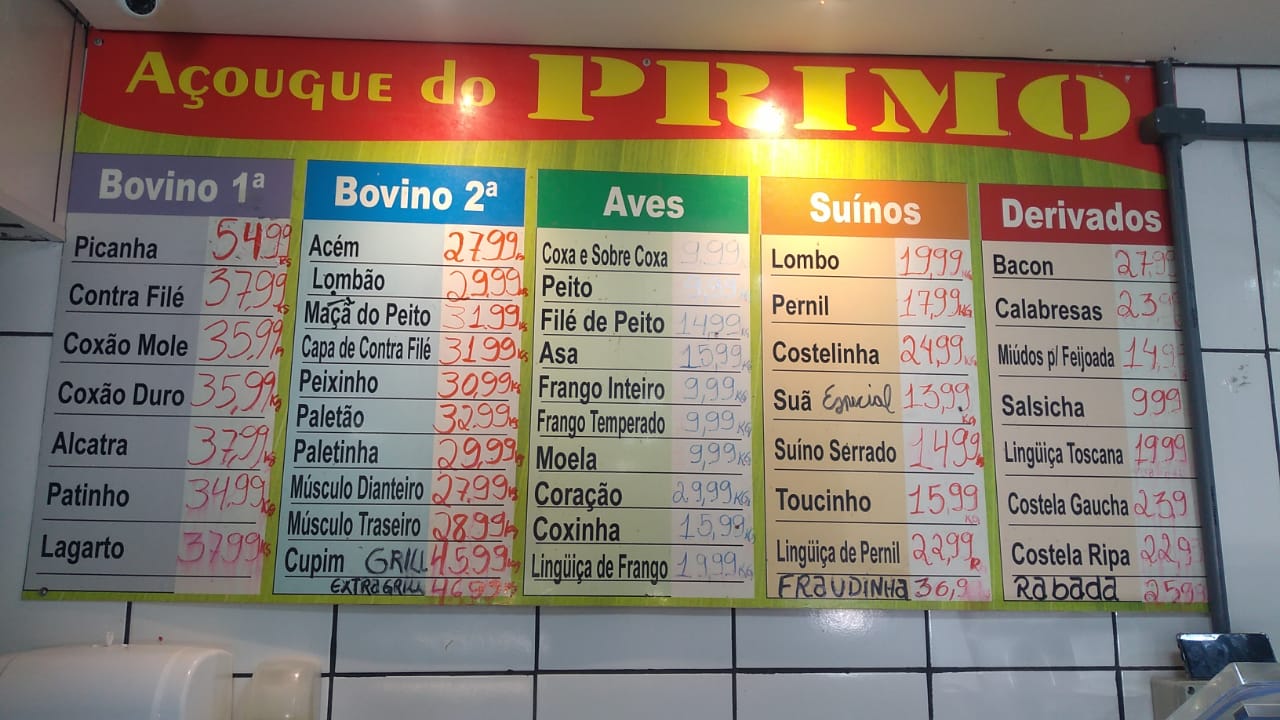 Açougue do PRIMO
Bovino 1ª
Picanha 54,99 KG
Contra Filé 37,99 KG
Coxão Mole 35,99
Coxão Duro 35,99 KG
Alcatra 37,99 KG
Patinho 34,99 KG
Lagarto 37,99 KG
Bovino 2ª
Acém 27,99
Lombão 29,99
Maçã do Peito 31,99
Capa de Contra Filé 31,99
Peixinho 30,99
Paletão 32,99
Paletinha 29,99
Músculo Dianteiro 27,99
Músculo Traseiro 28,99
Cupim GRILL 45,99
EXTRAGRILL 46,99
Aves
Coxa e Sobre Coxa 9,99
Peito
Filé de Peito 14,99
Asa 15,99 KG
Frango Inteiro 9,99 KG
Frango Temperado 9,99 KG
Moela 9,99 KG
Coração 29,99 KG
Coxinha 15,99 KG
Lingüiça de Frango 19,99 KG
Suínos
Lombo 19,99 KG
Pernil 17,99 KG
Costelinha 24,99 KG
Suã Especial 13,99 KG
Suíno Serrado 14,99
Toucinho 15,99 KG
Lingüiça de Pernil 22,99
FRAUDINHA 36,9
Derivados
Bacon 27,99
Calabresas 23,9
Miúdos p/ Feijoada 14,9
Salsicha 9,99
Lingüiça Toscana 19,99
Costela Gaucha 23,9
Costela Ripa 22,9
Rabada 25,9